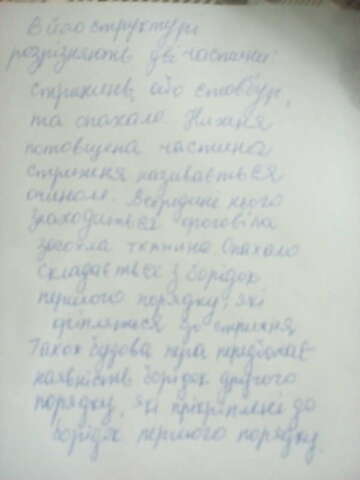 В його структурі
розрізняють дві частини:
стрижень, або стовбур,
та опахало. Нижня
потовщена частина
стрижня називається
очином. Всередині нього
знаходиться роговіла
засохла тканина. Опахало
складається з борідок
першого порядку, які
кріпляться до стрижня
Також будова пера передбачає
наявність борідок другого
порядку, які прікріплені до
борідок першого порядку.